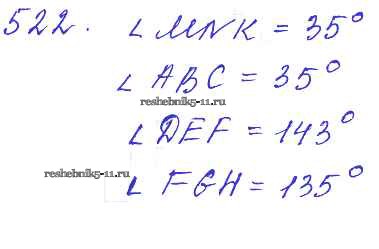 522. ∠ MNK = 35°
∠ ABC = 35°
reshebnik5-11.ru
∠ DEF = 143°
reshebnik5-11.ru
∠ FGH = 135°